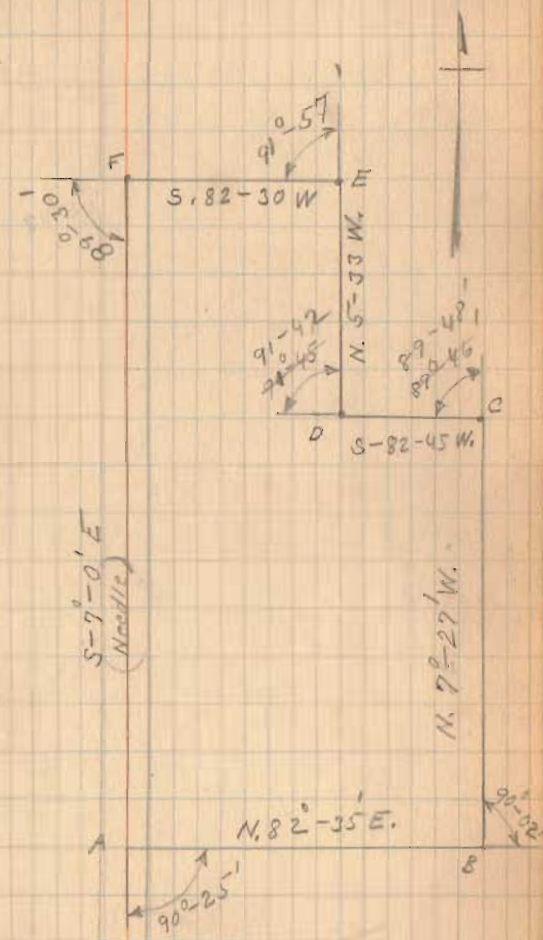 91°-57
F
E
S. 82-30 W
89°,30'
N. 5-33 W.
91-42
91°-45
89-48'
89°46
C
D
S-82-45 W.
S-7°-0' E
(Needle)
N. 7°-27' W.
90°-02'
N. 82°-35' E.
A
B
90°-25'